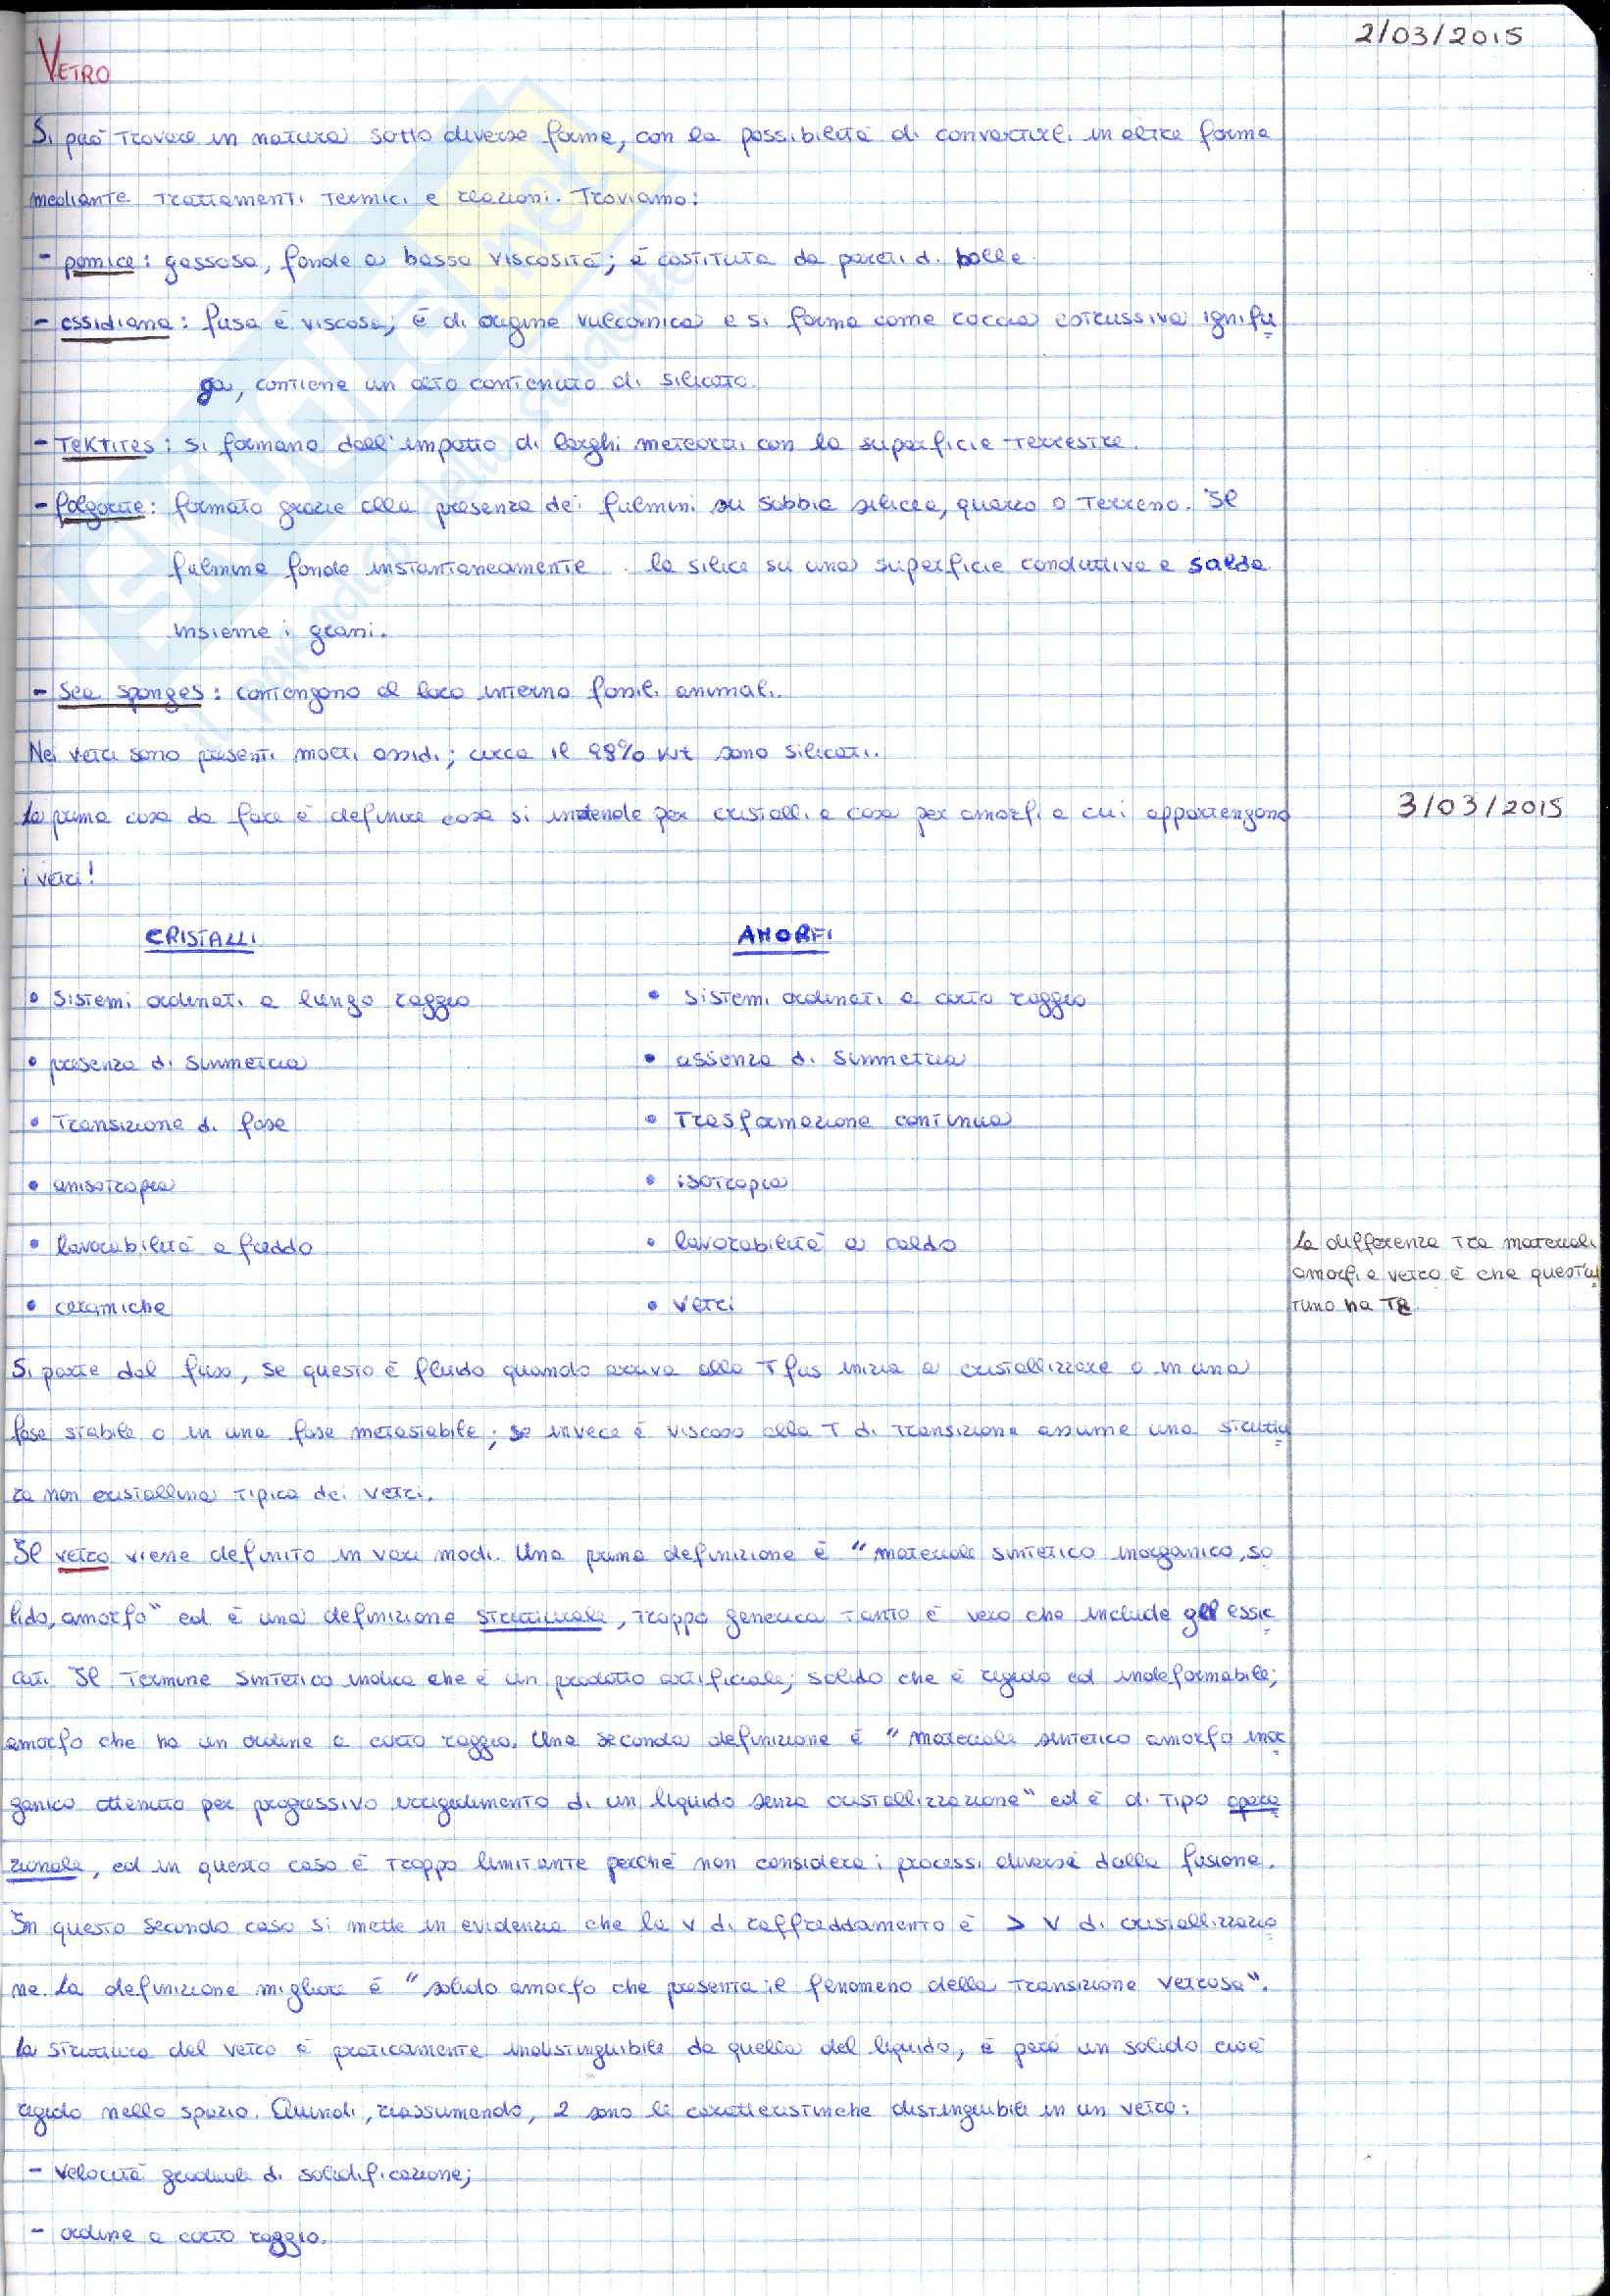 2/03/2015
VETRO
Si può trovare in natura sotto diverse forme, con la possibilità di convertirli in altre forme
mediante trattamenti termici e reazioni. Troviamo:
- pomice: gassosa, fonde a bassa viscosità; è costituita da pareti di bolle.
- ossidiana: fusa è viscosa; è di origine vulcanica e si forma come roccia estrussiva ignifu
ga, contiene un alto contenuto di silicato.
- Tektites: si formano dall'impatto di larghi meteoriti con la superficie terrestre.
- folgorite: formato grazie alla presenza dei fulmini su sabbia silicea, quarzo o terreno. Il
fulmine fonde instantaneamente la silice su una superficie conduttiva e salda
insieme i grani.
- Sea sponges: contengono al loro interno fossili animali.
Nei vetri sono presenti molti ossidi; circa il 98% wt sono silicati.
La prima cosa da fare è definire cosa si intende per cristalli e cosa per amorfi a cui appartengono
3/03/2015
i vetri!
CRISTALLI AMORFI
• Sistemi ordinati a lungo raggio • sistemi ordinati a corto raggio
• presenza di simmetria • assenza di simmetria
• Transizione di fase • Trasformazione continua
• anisotropia • isotropia
• lavorabilità a freddo • lavorabilità a caldo
• ceramiche • vetri
La differenza tra materiali
amorfi e vetro è che quest'ul
timo ha Tg.
Si parte dal fuso, se questo è fluido quando arriva alla T fus inizia a cristallizzare o in una
fase stabile o in una fase metastabile; se invece è viscoso alla T di transizione assume una struttu
ra non cristallina tipica dei vetri.
Il vetro viene definito in vari modi. Una prima definizione è "materiale sintetico inorganico, so
lido, amorfo" ed è una definizione strutturale, troppo generica tanto è vero che include gel essic
cati. Il termine sintetico indica che è un prodotto artificiale; solido che è rigido ed indeformabile;
amorfo che ha un ordine a corto raggio. Una seconda definizione è "materiale sintetico amorfo inor
ganico ottenuto per progressivo irrigidimento di un liquido senza cristallizzazione" ed è di tipo opera
zionale, ed in questo caso è troppo limitante perché non considera i processi diversi dalla fusione.
In questo secondo caso si mette in evidenza che la v di raffreddamento è > v di cristallizzazio
ne. La definizione migliore è "solido amorfo che presenta il fenomeno della transizione vetrosa".
La struttura del vetro è praticamente indistinguibile da quella del liquido, è però un solido cioè
rigido nello spazio. Quindi, riassumendo, 2 sono le caratteristiche distinguibili in un vetro:
- velocità graduale di solidificazione;
- ordine a corto raggio.